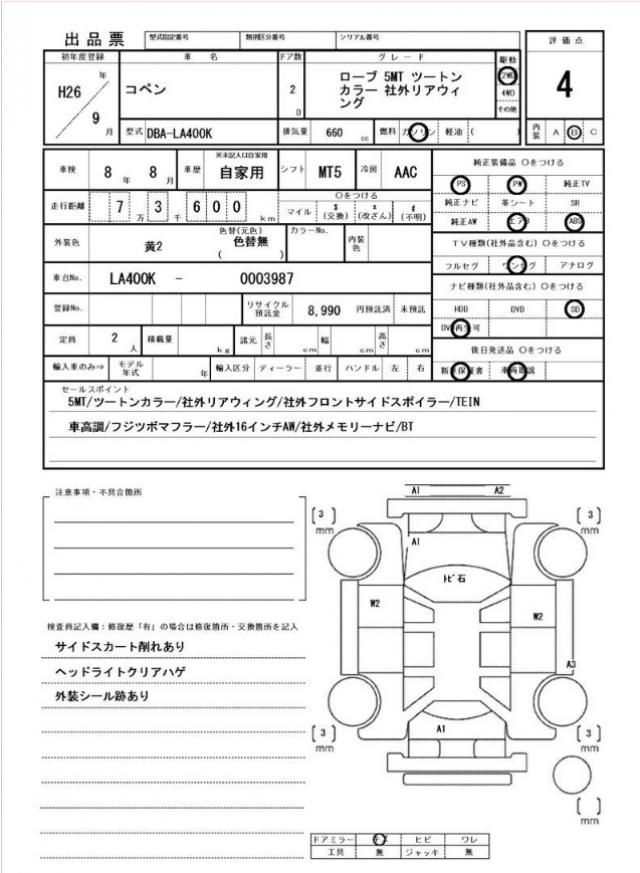 出品票 型式指定番号 類別区分番号 シリアル番号 評価点
初年度登録 車名 ドア数 グレード 駆動
H26 年 9 月 コペン 2 D
ローブ 5MT ツートン
カラー 社外リアウィ
ング
2WD
4WD
その他
4
型式 DBA-LA400K 排気量 660 cc 燃料 ガソリン 軽油 ( ) 内装 A B C
車検 8 年 8 月 車歴 ※未記入は自家用 自家用 シフト MT5 冷房 AAC
純正装備品 Oをつける
PS PW 純正TV
走行距離 7 万 3 千 6 0 0 km
Oをつける
マイル $ (交換) * (改ざん) # (不明)
純正ナビ 革シート SR
純正AW エアB ABS
外装色 黄2 色替(元色) 色替無 ( ) カラーNo. 内装色
TV種類(社外品含む) Oをつける
フルセグ ワンセグ アナログ
車台No. LA400K - 0003987
ナビ種類(社外品含む) Oをつける
登録No. リサイクル預託金 8,990 円預託済 未預託
HDD DVD SD
DVD再生可
定員 2 人 積載量 kg 諸元 長さ cm 幅 cm 高さ cm
後日発送品 Oをつける
輸入車のみ⇒ モデル年式 年 輸入区分 ディーラー 並行 ハンドル 左 右
新車保証書 車両取説
セールスポイント
5MT/ツートンカラー/社外リアウィング/社外フロントサイドスポイラー/TEIN
車高調/フジツボマフラー/社外16インチAW/社外メモリーナビ/BT
注意事項・不具合箇所
A1 A2
[3] mm [3] mm
A1
トビ石
W2 W2
A3
検査員記入欄:修復歴「有」の場合は修復箇所・交換箇所を記入
サイドスカート削れあり
ヘッドライトクリアハゲ
外装シール跡あり
A1
[3] mm [3] mm
[ ] mm
ドアミラー キズ ヒビ ワレ
工具 無 ジャッキ 無